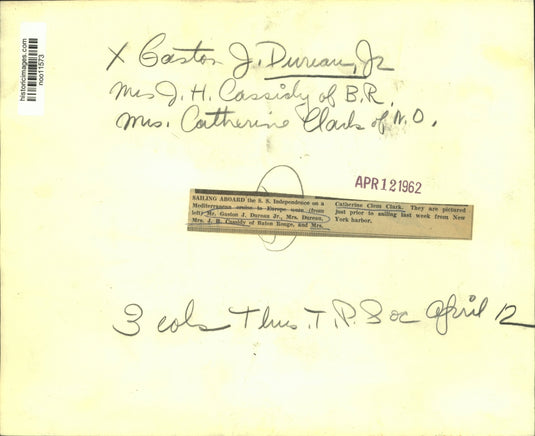 historicimages.com
noo11573
X Gaston J. Dureau, Jr
Mrs J. H. Cassidy of B.R.
Mrs. Catherine Clark of N.O.
APR 12 1962
SAILING ABOARD the S. S. Independence on a
Mediterranean cruise to Europe were (from
left) Mr. Gaston J. Dureau Jr., Mrs. Dureau,
Mrs. J. H. Cassidy of Baton Rouge, and Mrs.
Catherine Clem Clark. They are pictured
just prior to sailing last week from New
York harbor.
3 cols Thurs. T.P. Soc April 12